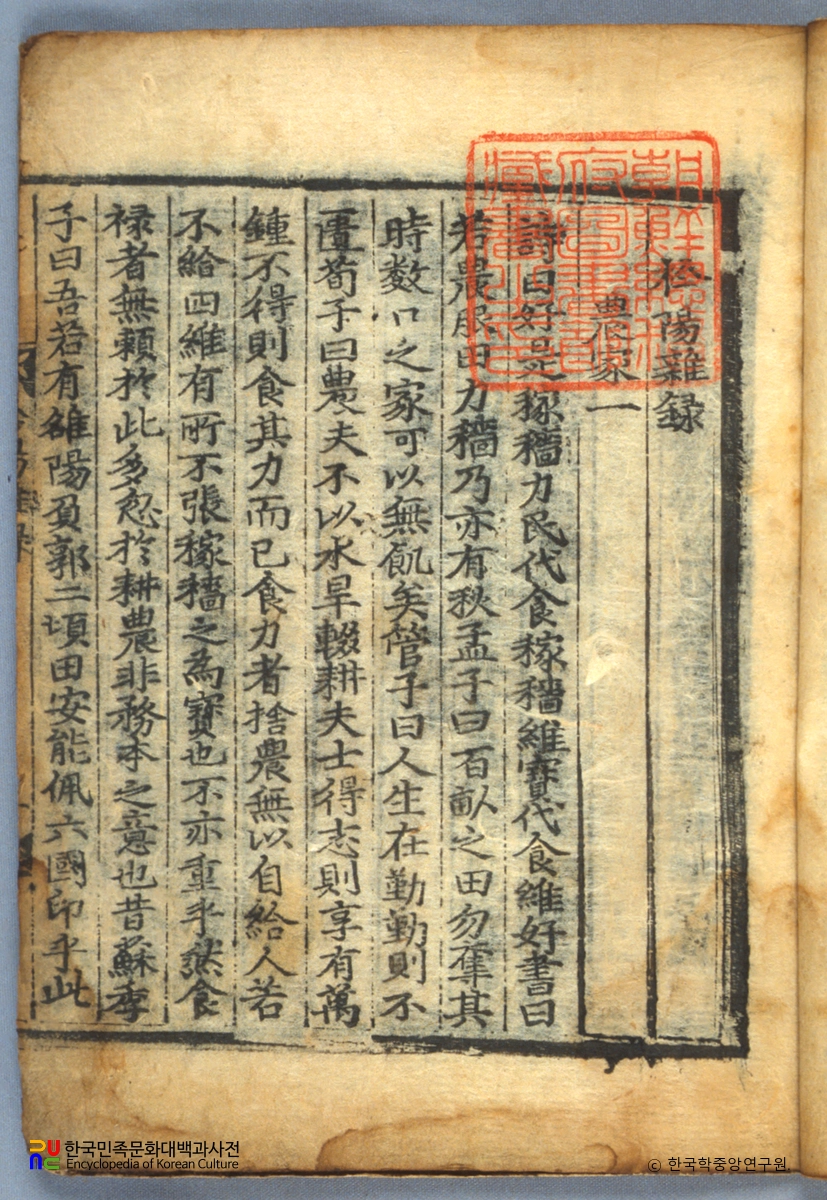 朝鮮總督
府圖書館
藏書之印
衿陽雜録
農家一
詩曰好是稼穡力民代食稼穡維寶代食維好書曰
若農服田力穡乃亦有秋孟子曰百畝之田勿奪其
時数口之家可以無飢矣管子曰人生在勤勤則不
匱荀子曰農夫不以水旱輟耕夫士得志則享有萬
鍾不得則食其力而已食力者捨農無以自給人若
不給四維有所不張稼穡之為寶也不亦重乎然食
禄者無頼扵此多忽扵耕農非務本之意也昔蘇季
子曰吾若有雒陽負郭二頃田安能佩六國印乎此
한국민족문화대백과사전
Encyclopedia of Korean Culture
© 한국학중앙연구원